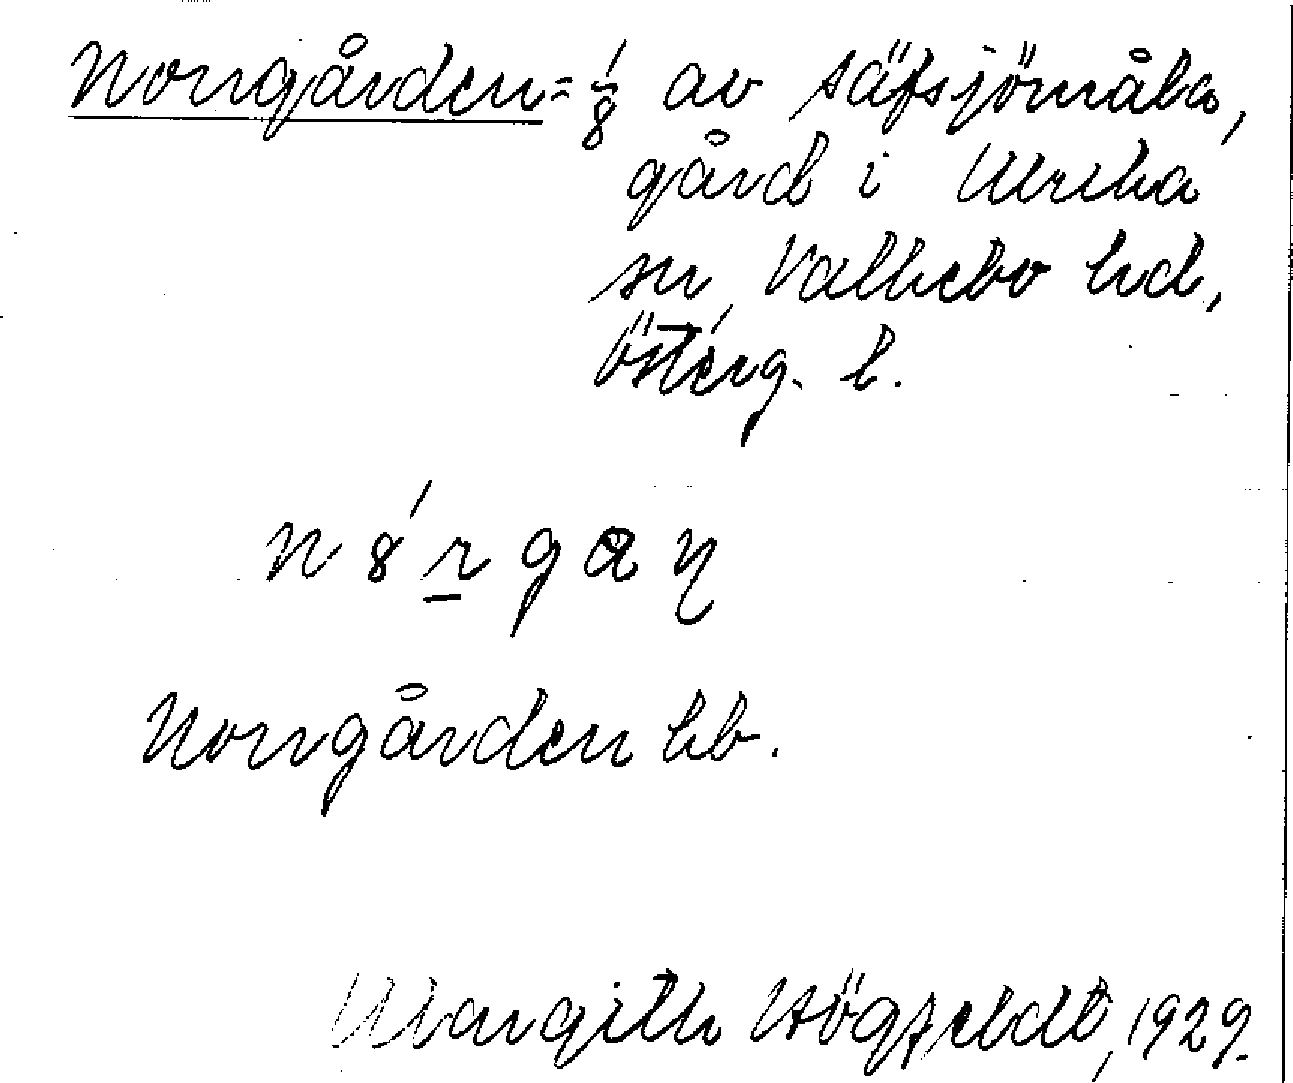 Norrgården = 1/8 av Säfsjömåla,
gård i Ulrika
sn, Valkebo hd,
Österg. l.
n 8́ r̲ g a ŋ
Norrgården hb.
Margith Högfeldt, 1929.